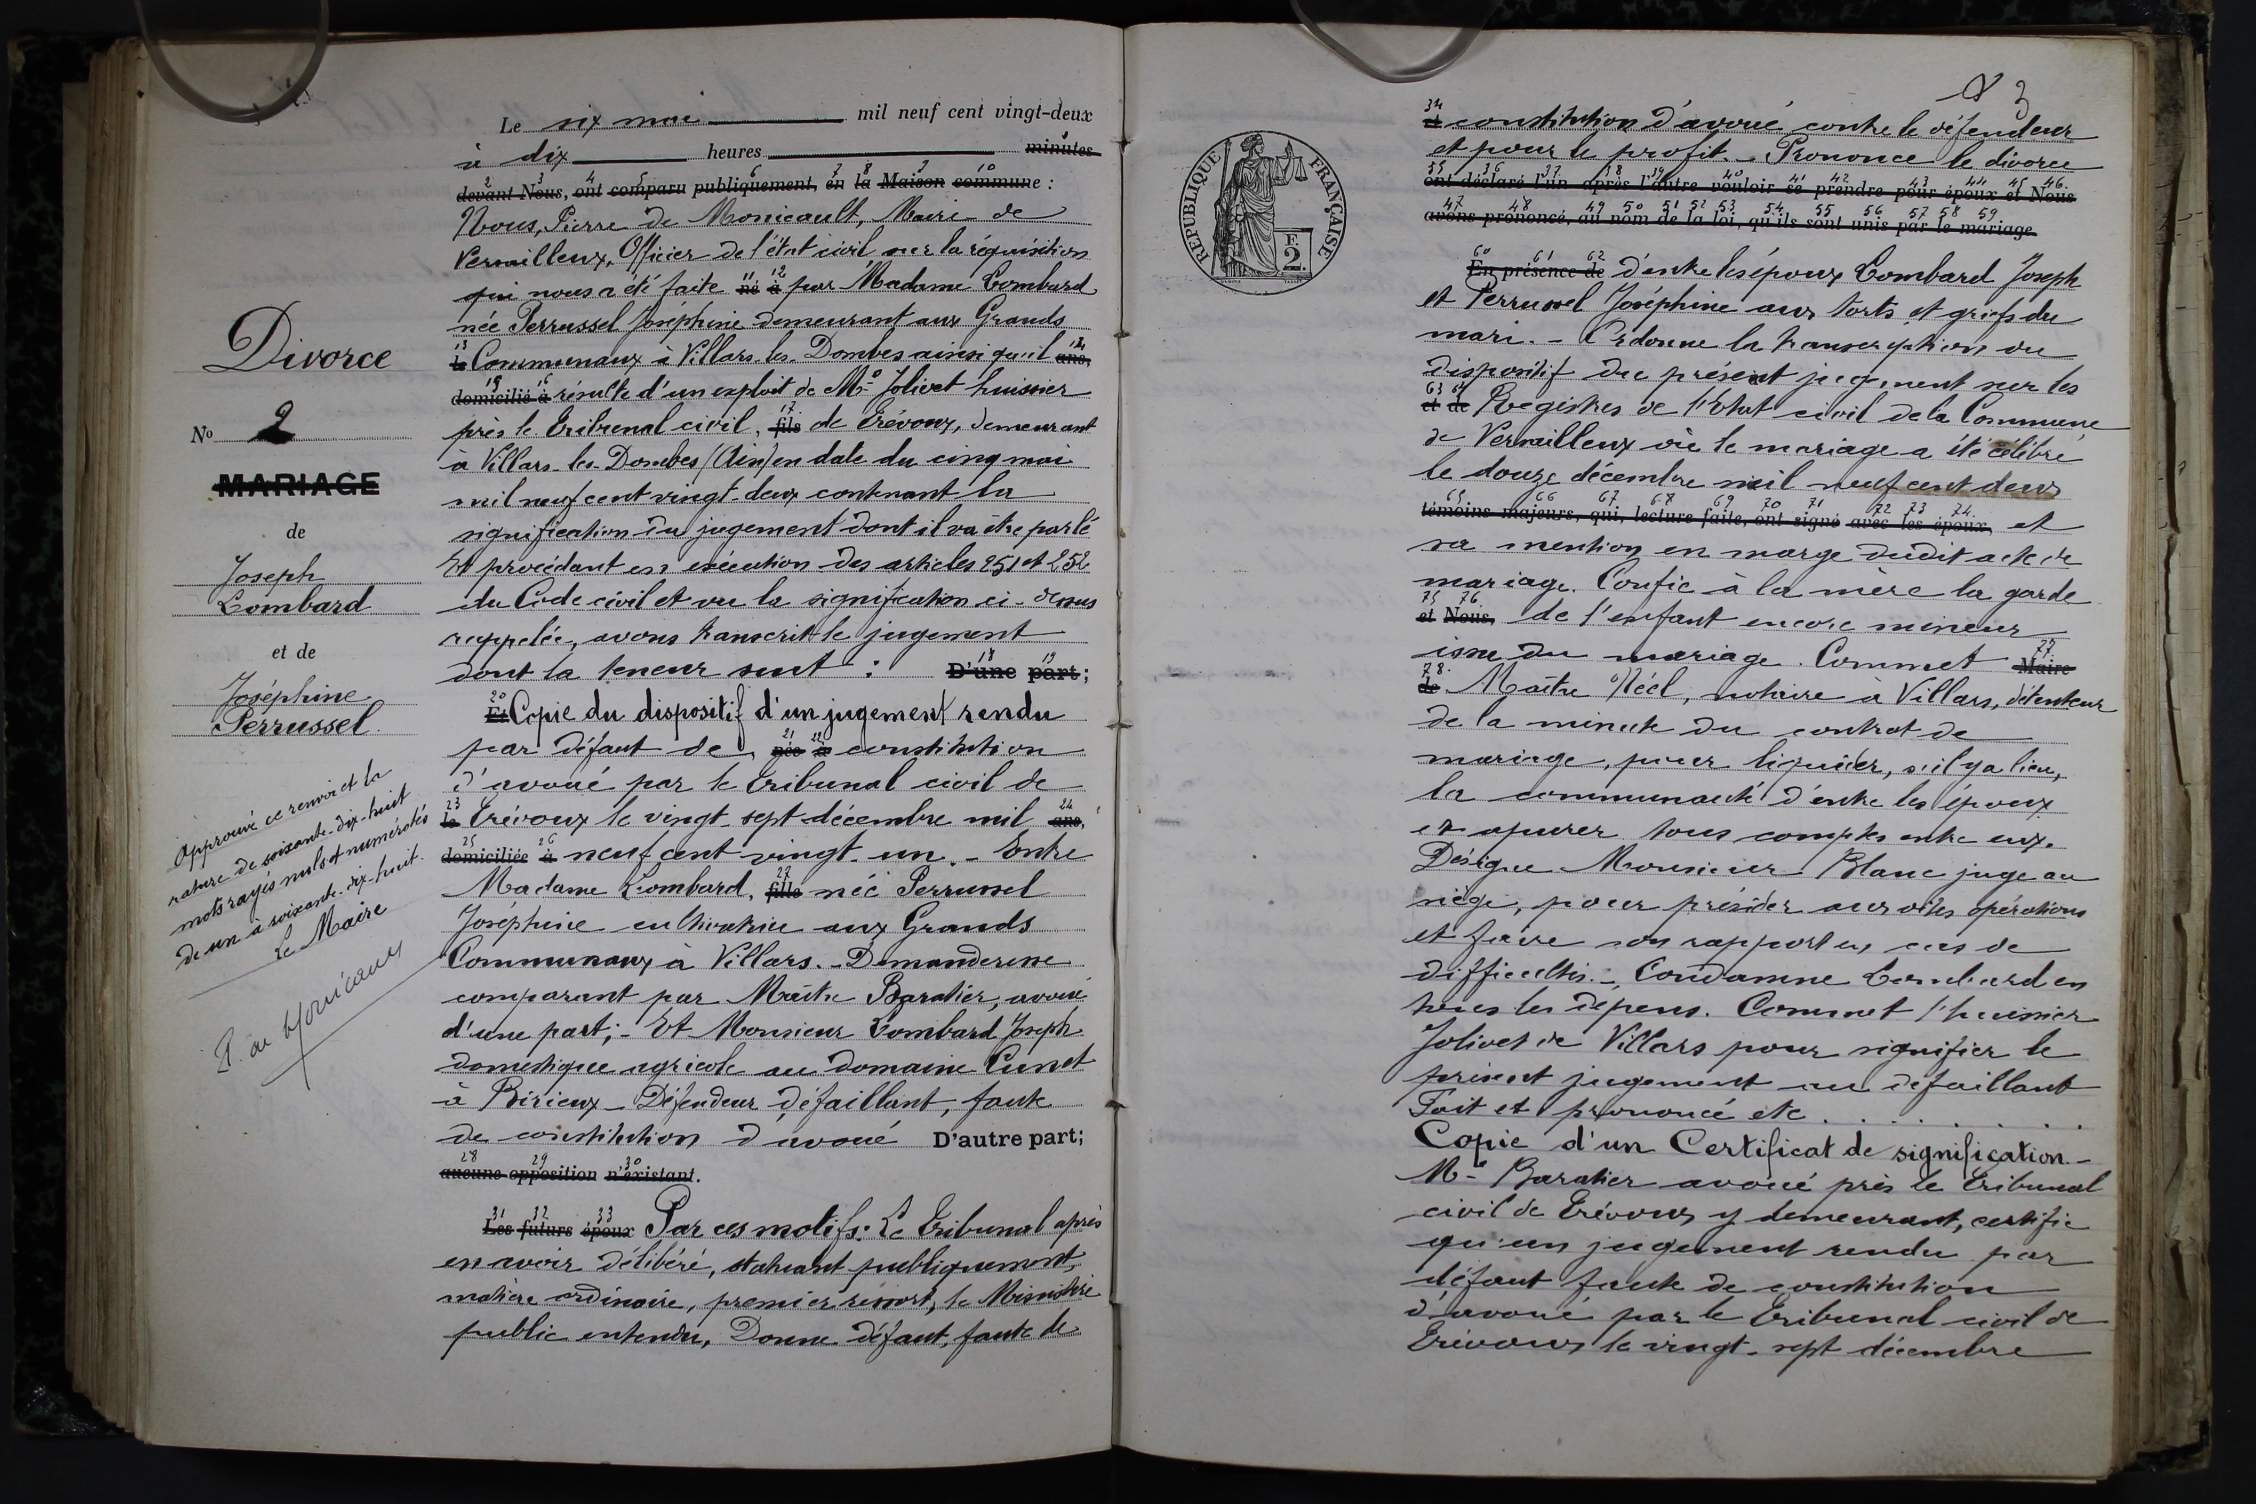 Le six mai mil neuf cent vingt-deux
à dix heures minutes
devant Nous, ont comparu publiquement, en la Maison commune :
Nous, Pierre de Monicault, Maire de
Versailleux, Officier de l'état civil sur la réquisition
qui nous a été faite né à par Madame Lombard
née Perrussel Joséphine demeurant aux Grands
le Communaux à Villars les Dombes ainsi qu'il ans,
domicilié à résulte d'un exploit de Me Jolivet huissier
près le Tribunal civil, fils de Trévoux, demeurant
à Villars-les-Dombes (Ain) en date du cinq mai
mil neuf cent vingt-deux contenant la
signification du jugement dont il va être parlé
Et procédant en exécution des articles 251 et 252
du Code civil et vu la signification ci-dessus
rappelée, avons transcrit le jugement
dont la teneur suit : D'une part;
Et Copie du dispositif d'un jugement rendu
par défaut de née à constitution
d'avoué par le Tribunal civil de
le Trévoux le vingt-sept décembre mil ans,
domiciliée à neuf cent vingt-un. - Entre
Madame Lombard, fille née Perrussel
Joséphine cultivatrice aux Grands
Communaux à Villars. - Demanderesse
comparant par Maître Baratier, avoué
d'une part; - Et Monsieur Lombard Joseph
domestique agricole au domaine Cunet
à Birieux - Défendeur défaillant, faute
de constitution d'avoué D'autre part;
aucune opposition n'existant.
Les futurs époux Par ces motifs: Le Tribunal après
en avoir délibéré, statuant publiquement,
matière ordinaire, premier ressort, le Ministère
public entendu, Donne défaut, faute de
Divorce
No 2
MARIAGE
de
Joseph
Lombard
et de
Joséphine
Perrussel.
Approuvé ce renvoi et la
rature de soixante-dix-huit
mots rayés nuls et numérotés
de un à soixante-dix-huit.
Le Maire
P. de Monicault
3
RÉPUBLIQUE FRANÇAISE
F.
2.
et constitution d'avoué contre le défendeur
et pour le profit. - Prononce le divorce
ont déclaré l'un après l'autre vouloir se prendre pour époux et Nous
avons prononcé, au nom de la loi, qu'ils sont unis par le mariage.
En présence de d'entre les époux Lombard Joseph
et Perrussel Joséphine aux torts et griefs du
mari. - Ordonne la transcription du
dispositif du présent jugement sur les
et de Registres de l'Etat civil de la Commune
de Versailleux où le mariage a été célébré
le douze décembre mil neuf cent deux
témoins majeurs, qui, lecture faite, ont signé avec les époux, et
sa mention en marge dudit acte de
mariage. Confie à la mère la garde
et Nous, de l'enfant encore mineur
issu du mariage. Commet Maire
de Maître Réel, notaire à Villars, détenteur
de la minute du contrat de
mariage, pour liquider, s'il y a lieu,
la communauté d'entre les époux
et apurer tous comptes entre eux.
Désigne Monsieur Blanc juge au
siège, pour présider aux dites opérations
et faire son rapport en cas de
difficultés. - Condamne Lombard en
tous les dépens. Commet l'huissier
Jolivet de Villars pour signifier le
présent jugement au défaillant
Fait et prononcé etc . . . . . . .
Copie d'un Certificat de signification. -
Me Baratier avoué près le Tribunal
civil de Trévoux y demeurant, certifie
qu'un jugement rendu par
défaut faute de constitution
d'avoué par le Tribunal civil de
Trévoux le vingt-sept décembre